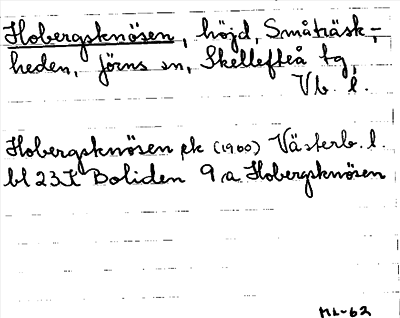 Hobergsknösen, höjd, Småträsk-
heden, Jörns sn, Skellefteå tg,
Vb. l.
Hobergsknösen pk (1900) Västerb. l.
bl 23K Boliden 9a Hobergsknösen
ML-62